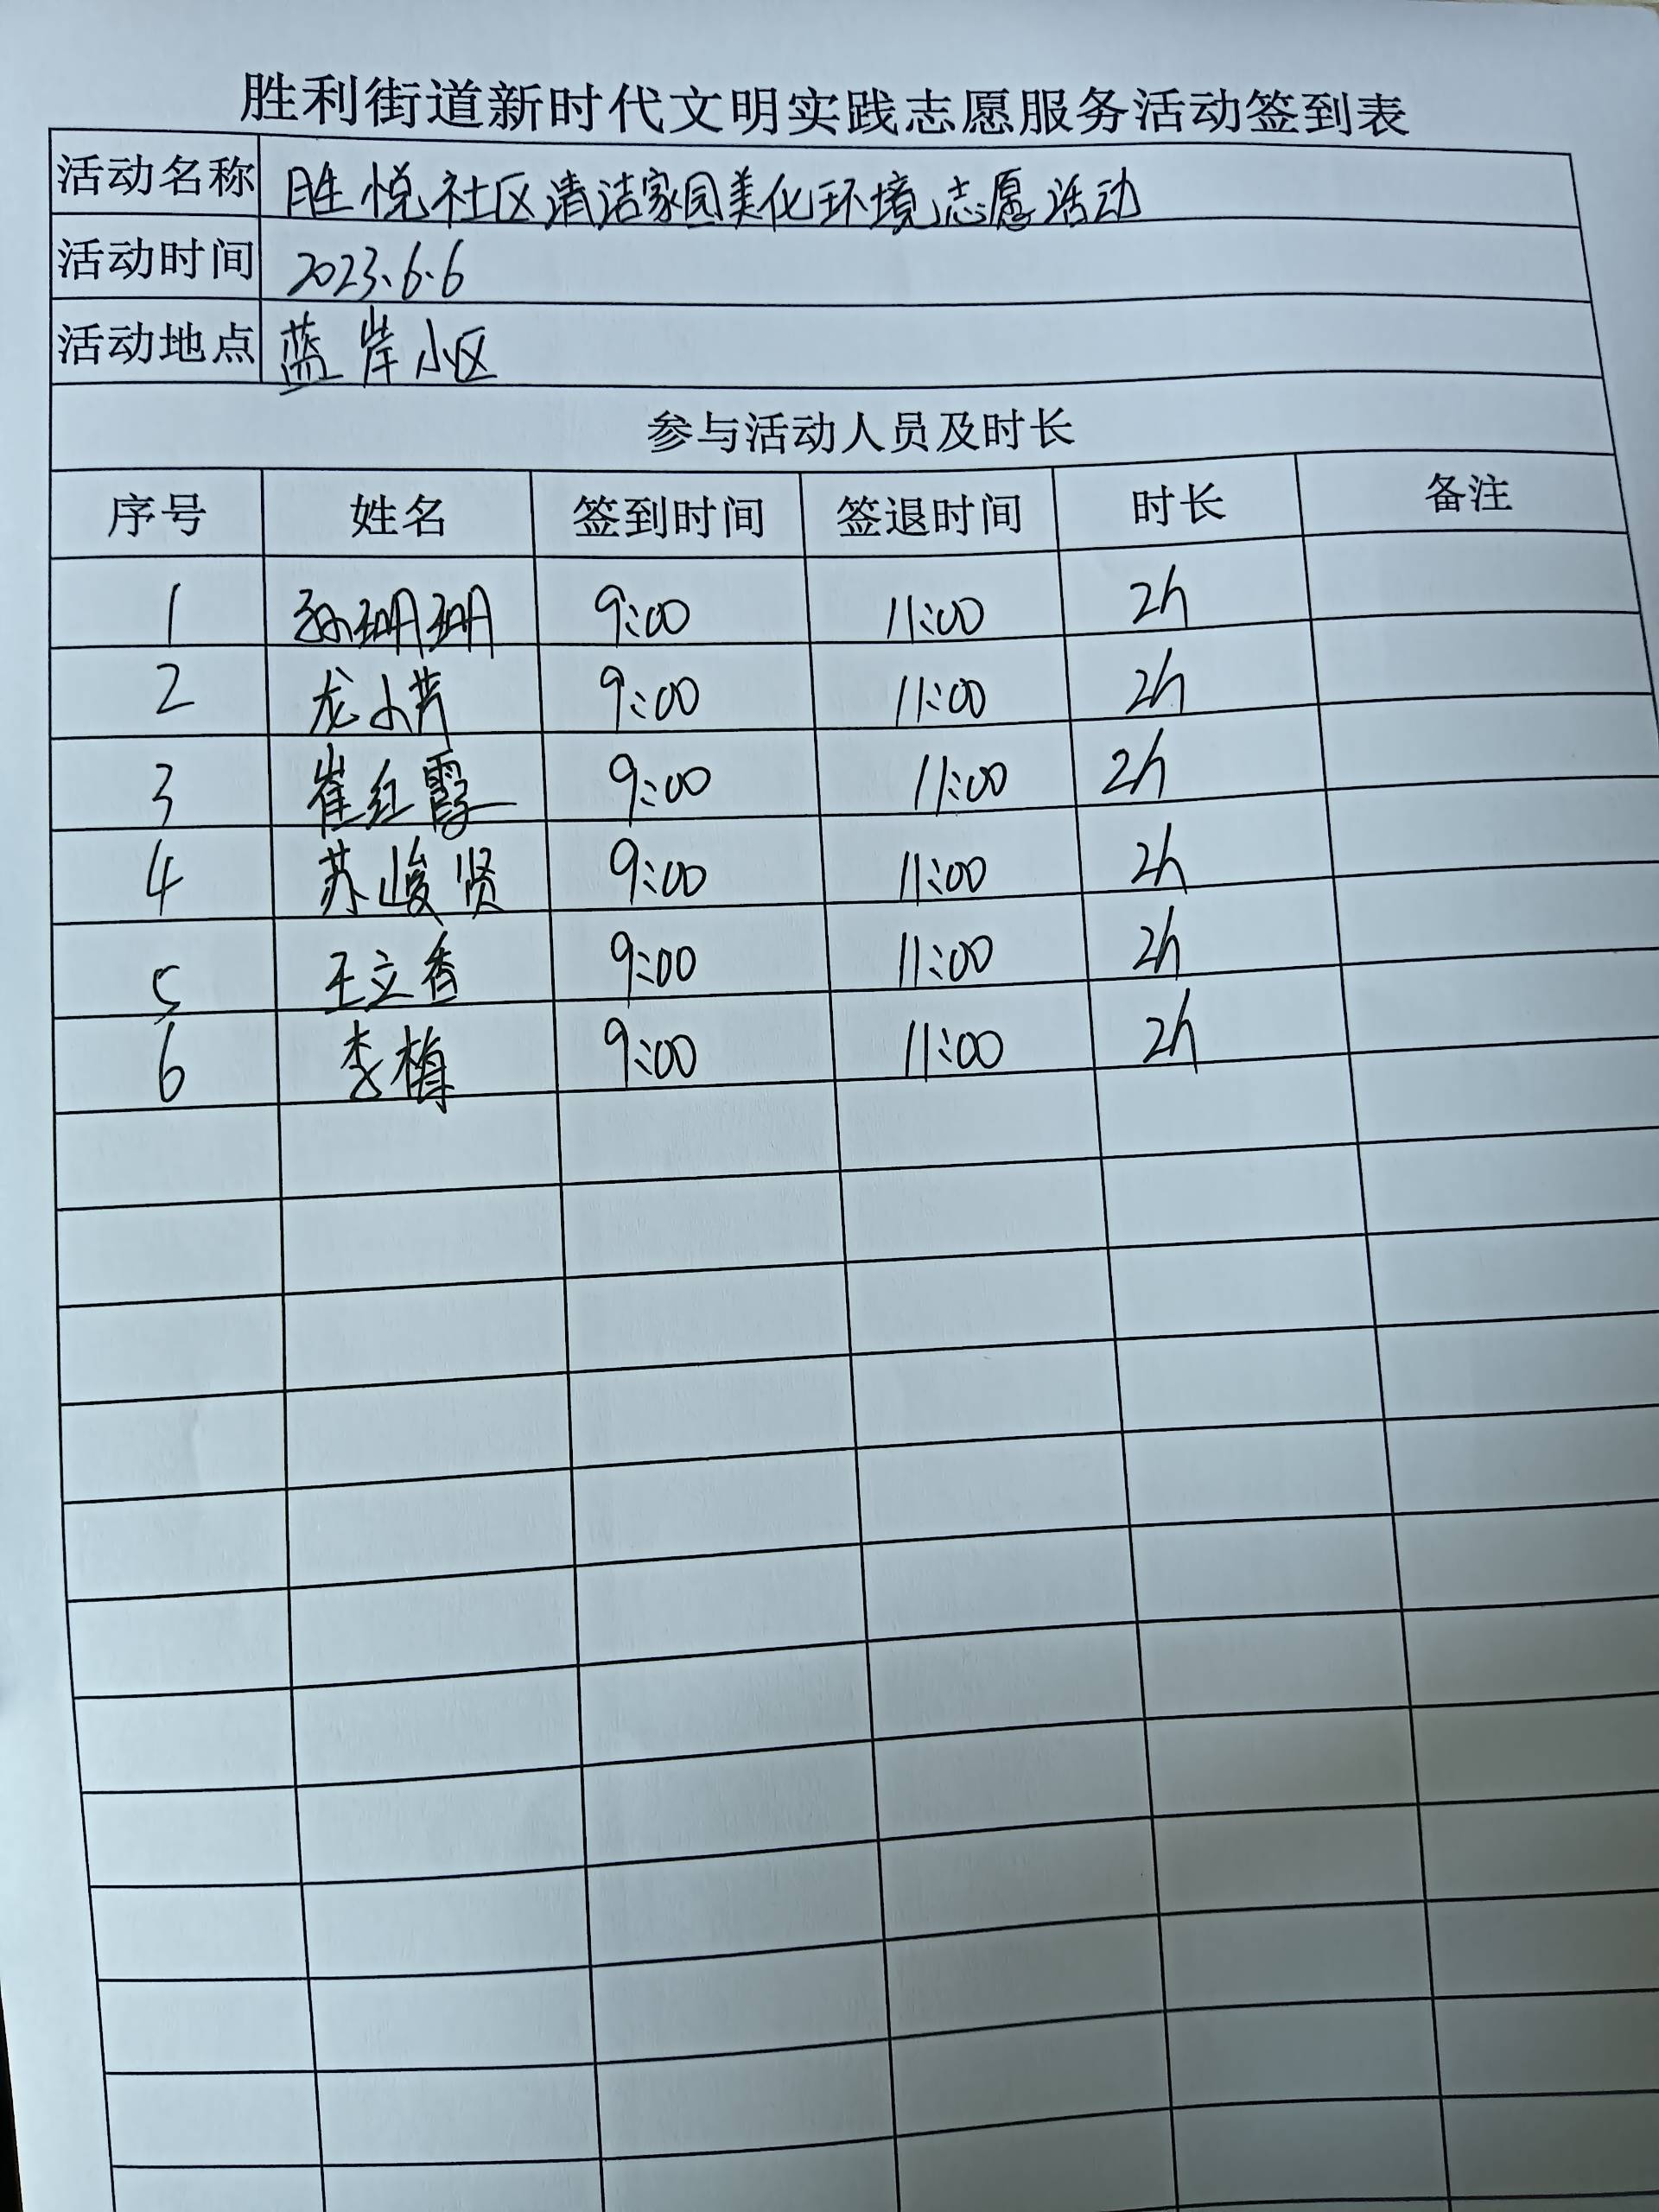 胜利街道新时代文明实践志愿服务活动签到表
活动名称 胜悦社区清洁家园美化环境志愿活动
活动时间 2023.6.6
活动地点 蓝岸小区
参与活动人员及时长
序号 姓名 签到时间 签退时间 时长 备注
1 孙珊珊 9:00 11:00 2h
2 龙小芳 9:00 11:00 2h
3 崔红霞 9:00 11:00 2h
4 苏峻贤 9:00 11:00 2h
5 王立香 9:00 11:00 2h
6 李梅 9:00 11:00 2h